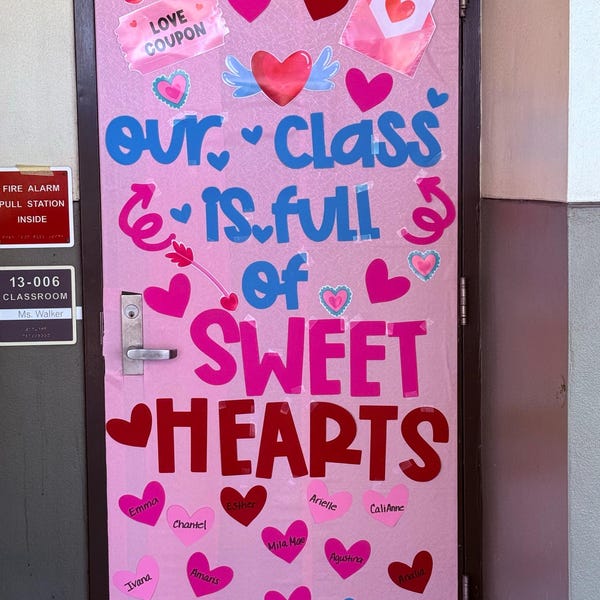 LOVE
COUPON
our class
is full
of
SWEET
HEARTS
FIRE ALARM
PULL STATION
INSIDE
13-006
CLASSROOM
Ms. Walker
Emma
Chantel
Esther
Arielle
CaliAnne
Mila Mae
Agustina
Ivana
Amaris
Analia